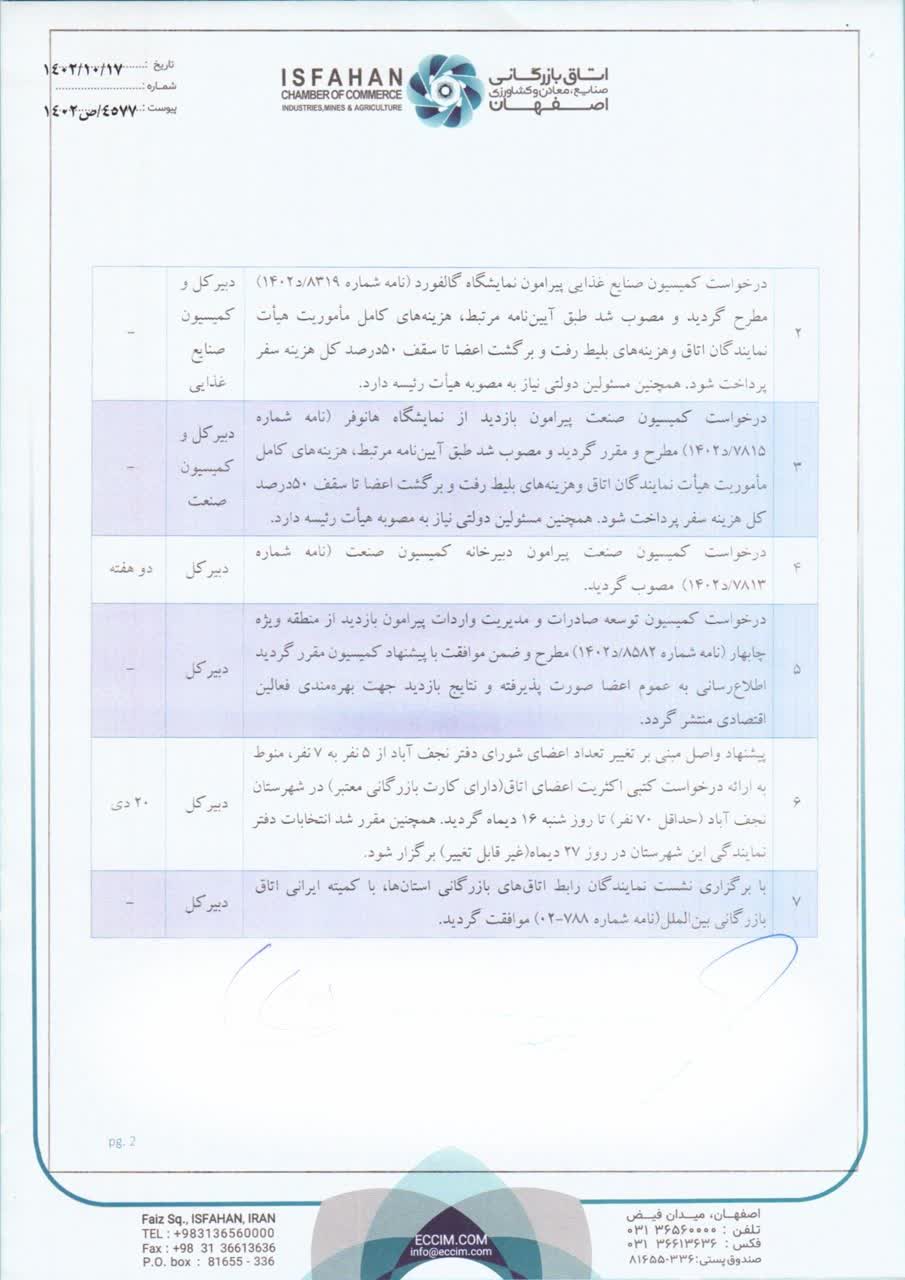 تاریخ :........۱۴۰۲/۱۰/۱۷
شماره:........................
پیوست :...۱۴۰۲ص/۴۵۷۷
ISFAHAN
CHAMBER OF COMMERCE
INDUSTRIES, MINES & AGRICULTURE
اتاق بازرگانی
صنایع، معادن و کشاورزی
اصفهان
۲
درخواست کمیسیون صنایع غذایی پیرامون نمایشگاه گالفورد (نامه شماره ۸۳۱۹/د۱۴۰۲)
مطرح گردید و مصوب شد طبق آیین‌نامه مرتبط، هزینه‌های کامل مأموریت هیأت
نمایندگان اتاق وهزینه‌های بلیط رفت و برگشت اعضا تا سقف ۵۰درصد کل هزینه سفر
پرداخت شود. همچنین مسئولین دولتی نیاز به مصوبه هیأت رئیسه دارد.
دبیر کل و
کمیسیون
صنایع
غذایی
-
۳
درخواست کمیسیون صنعت پیرامون بازدید از نمایشگاه هانوفر (نامه شماره
۷۸۱۵/د۱۴۰۲) مطرح و مقرر گردید و مصوب شد طبق آیین‌نامه مرتبط، هزینه‌های کامل
مأموریت هیأت نمایندگان اتاق وهزینه‌های بلیط رفت و برگشت اعضا تا سقف ۵۰درصد
کل هزینه سفر پرداخت شود. همچنین مسئولین دولتی نیاز به مصوبه هیأت رئیسه دارد.
دبیر کل و
کمیسیون
صنعت
-
۴
درخواست کمیسیون صنعت پیرامون دبیرخانه کمیسیون صنعت (نامه شماره
۷۸۱۳/د۱۴۰۲) مصوب گردید.
دبیر کل
دو هفته
۵
درخواست کمیسیون توسعه صادرات و مدیریت واردات پیرامون بازدید از منطقه ویژه
چابهار (نامه شماره ۸۵۸۲/د۱۴۰۲) مطرح و ضمن موافقت با پیشنهاد کمیسیون مقرر گردید
اطلاع‌رسانی به عموم اعضا صورت پذیرفته و نتایج بازدید جهت بهره‌مندی فعالین
اقتصادی منتشر گردد.
دبیر کل
-
۶
پیشنهاد واصل مبنی بر تغییر تعداد اعضای شورای دفتر نجف آباد از ۵ نفر به ۷ نفر، منوط
به ارائه درخواست کتبی اکثریت اعضای اتاق(دارای کارت بازرگانی معتبر) در شهرستان
نجف آباد (حداقل ۷۰ نفر) تا روز شنبه ۱۶ دیماه گردید. همچنین مقرر شد انتخابات دفتر
نمایندگی این شهرستان در روز ۲۷ دیماه(غیر قابل تغییر) برگزار شود.
دبیر کل
۲۰ دی
۷
با برگزاری نشست نمایندگان رابط اتاق‌های بازرگانی استان‌ها، با کمیته ایرانی اتاق
بازرگانی بین‌الملل(نامه شماره ۷۸۸-۰۲) موافقت گردید.
دبیر کل
-
pg. 2
Faiz Sq., ISFAHAN, IRAN
TEL : +983136560000
Fax : +98 31 36613636
P.O. box : 81655 - 336
ECCIM.COM
info@eccim.com
اصفهان، میدان فیض
تلفن : ۳۶۵۶۰۰۰۰ ۰۳۱
فکس : ۳۶۶۱۳۶۳۶ ۰۳۱
صندوق پستی: ۳۳۶-۸۱۶۵۵